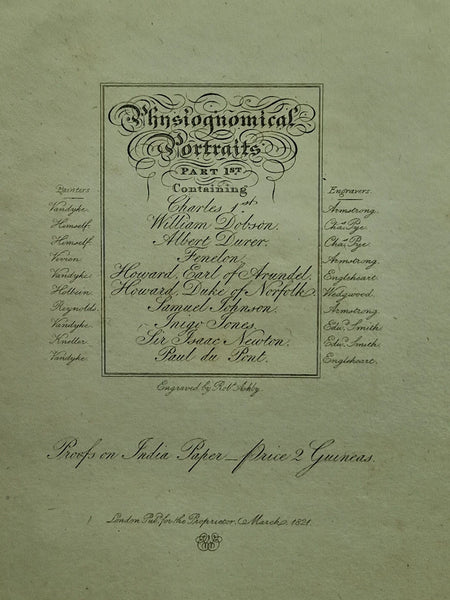 Physiognomical
Portraits
PART 1ST
Containing
Painters Engravers
Vandyke. Charles 1st. Armstrong.
Himself. William Dobson. Chas. Pye.
Himself. Albert Durer. Chas. Pye.
Vivion Fenelon. Armstrong.
Vandyke. Howard, Earl of Arundel. Engleheart
Holbein. Howard, Duke of Norfolk. Wedgwood.
Reynolds. Samuel Johnson. Armstrong.
Vandyke. Inigo Jones. Edwd. Smith.
Kneller Sir Isaac Newton. Edwd. Smith.
Vandyke. Paul du Pont. Engleheart.
Engraved by Robt. Ashby.
Proofs on India Paper_Price 2 Guineas.
London Pub. for the Proprietor. March, 1821.